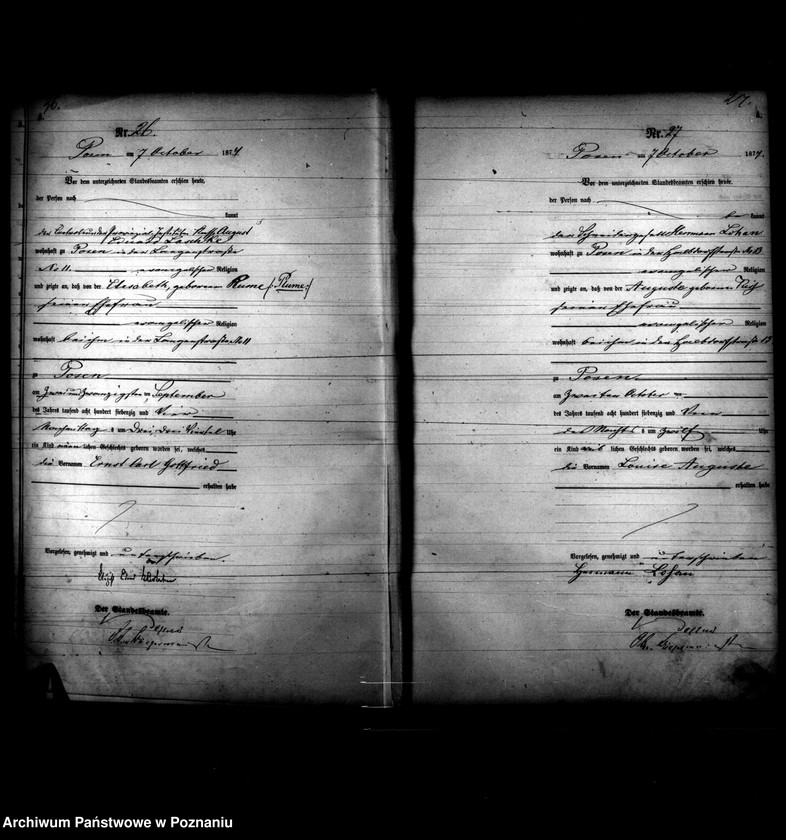 26.
Nr. 26.
Posen am 7 October 1874
Vor dem unterzeichneten Standesbeamten erschien heute,
der Person nach
kannt
August
Eduard
wohnhaft zu Posen in der Langenstraße
No 11. evangelischer Religion
und zeigte an, daß von der Elisabeth, geborenen Rume (: Rume :)
seiner Ehefrau
evangelischer Religion
wohnhaft bei ihm in der Langenstraße No 11
zu Posen
am zwei und zwanzigsten September
des Jahres tausend acht hundert siebenzig und Vier
Nachmittags um Drei, Viertel Uhr
ein Kind männlichen Geschlechts geboren worden sei, welches
die Vornamen Ernst Carl Gottfried
erhalten habe
Vorgelesen, genehmigt und unterschrieben.
Der Standesbeamte.
27.
Nr. 27
Posen am 7 October 1874.
Vor dem unterzeichneten Standesbeamten erschien heute,
der Person nach
be kannt
der Schneidergesell Hermann Lohan
wohnhaft zu Posen in der Halbdorfstraße No 13
evangelischer Religion
und zeigte an, daß von der Auguste geborenen
seiner Ehefrau
evangelischer Religion
wohnhaft bei ihm in der Halbdorfstraße 13
zu Posen
am Zweiten October
des Jahres tausend acht hundert siebenzig und Vier
des Nachts um zwölf Uhr
ein Kind lichen Geschlechts geboren worden sei, welches
die Vornamen Louise Auguste
erhalten habe
Vorgelesen, genehmigt und unterschrieben
Hermann Lohan
Der Standesbeamte.
Archiwum Państwowe w Poznaniu